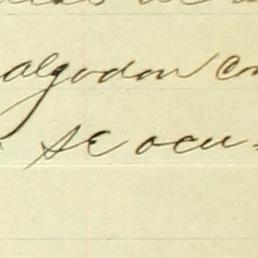 algodon con
se ocu-